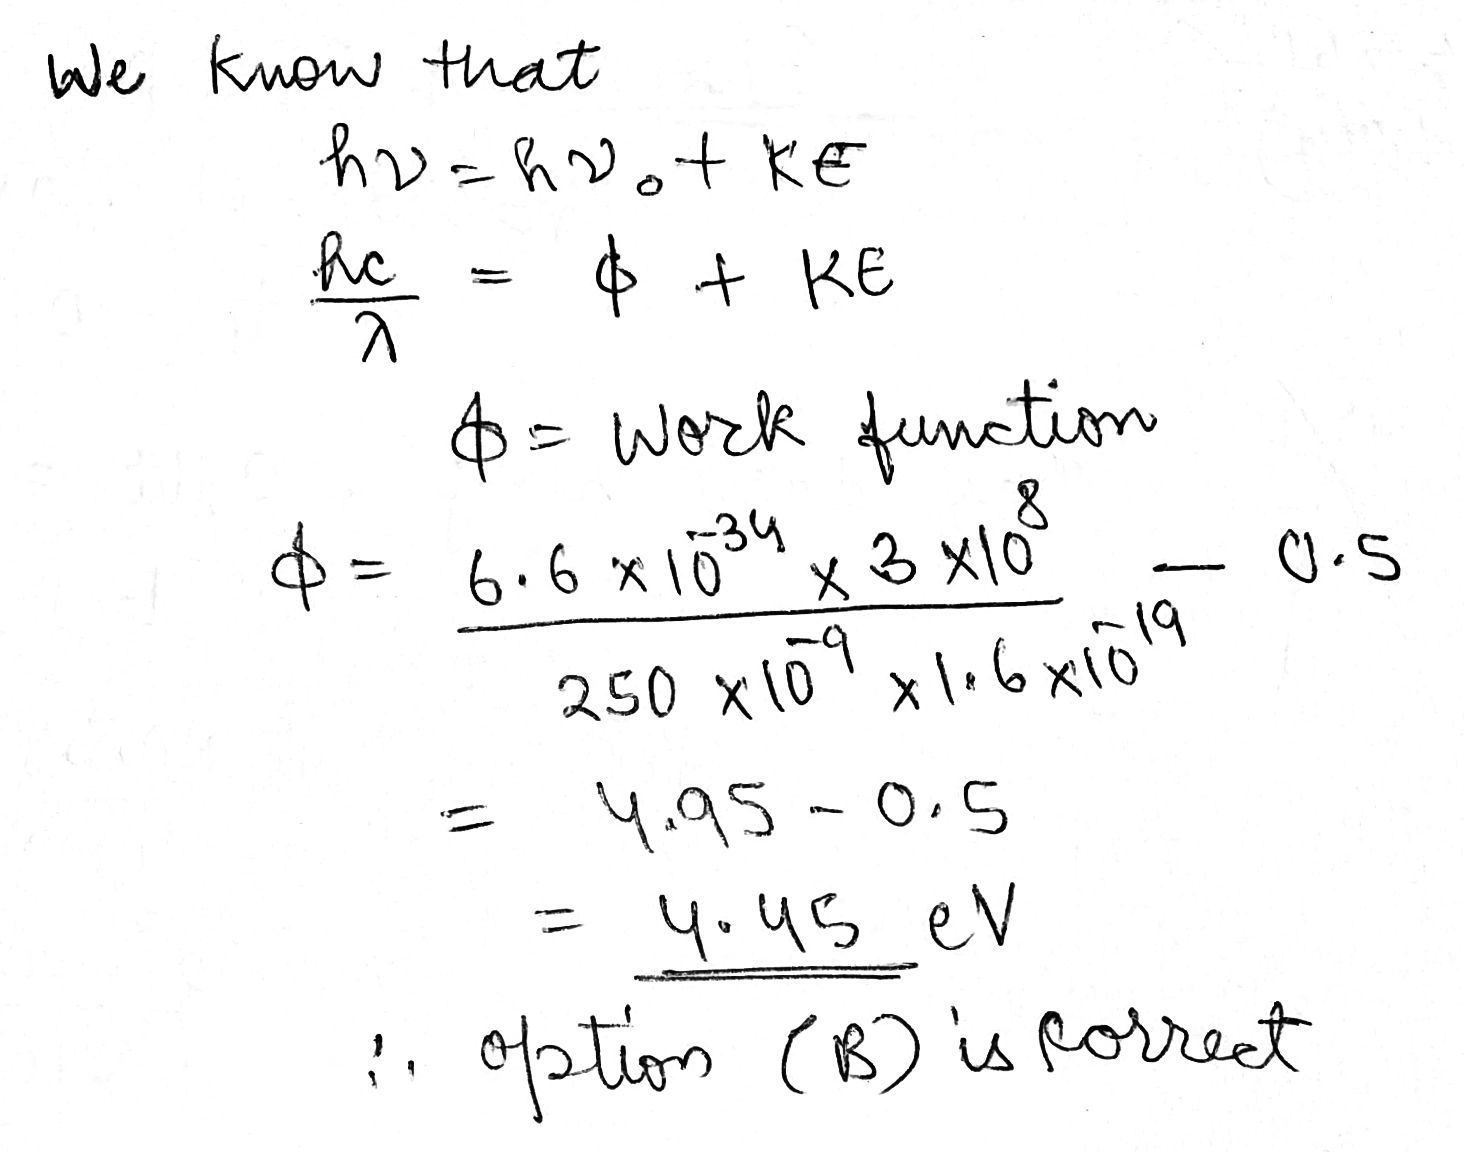 We know that
hν = hν₀ + KE
hc/λ = ϕ + KE
ϕ = Work function
ϕ = (6.6 × 10⁻³⁴ × 3 × 10⁸)/(250 × 10⁻⁹ × 1.6 × 10⁻¹⁹) − 0.5
= 4.95 − 0.5
= 4.45 eV
∴ option (B) is correct